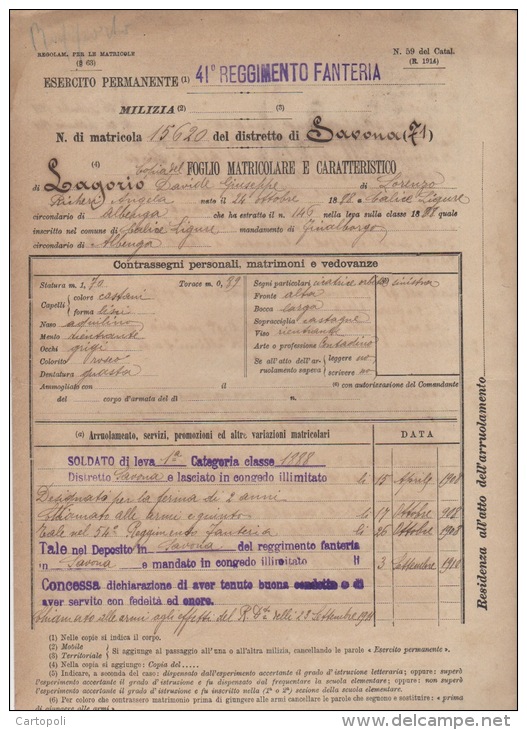 REGOLAM. PER LE MATRICOLE
(§ 63)
N. 59 del Catal.
(R. 1914)
ESERCITO PERMANENTE (1) 41° REGGIMENTO FANTERIA
MILIZIA (2) (3)
N. di matricola 15620 del distretto di Savona (71)
(4) Copia del FOGLIO MATRICOLARE E CARATTERISTICO
di Lagorio Davide Giuseppe di Lorenzo
Angela nato il 24 Ottobre 1888 a Calice Ligure
circondario di Albenga che ha estratto il n. 146 nella leva sulla classe 1888 quale
inscritto nel comune di Calice Ligure mandamento di Finalborgo
circondario di Albenga
Contrassegni personali, matrimoni e vedovanze
Statura m. 1, 70 Torace m. 0, 89
Capelli colore castani
forma lisci
Naso aquilino
Mento rientrante
Occhi grigi
Colorito roseo
Dentatura guasta
Segni particolari cicatrice sinistra
Fronte alta
Bocca larga
Sopracciglia castagne
Viso
Arte o professione Contadino
Se all'atto dell'ar- leggere no
ruolamento sapeva scrivere no
Ammogliato con il
(6) con autorizzazione del Comandante
del corpo d'armata del dì N.
(a) Arruolamento, servizi, promozioni ed altre variazioni matricolari DATA
SOLDATO di leva 1ª Categoria classe 1888
Distretto Savona e lasciato in congedo illimitato li 15 Aprile 1908
per la ferma di 2 anni
Chiamato alle armi e giunto li 17 Ottobre 908
Tale nel 54° Reggimento Fanteria li 26 Ottobre 1908
Tale nel Deposito in Savona del reggimento fanteria
in Savona e mandato in congedo illimitato li 3 Settembre 1910
Concessa dichiarazione di aver tenuto buona condotta e di
aver servito con fedeltà ed onore.
Chiamato alle armi agli effetti del R. D. delli 23 Settembre 1911
Residenza all'atto dell'arruolamento
(1) Nelle copie si indica il corpo.
(2) Mobile
(3) Territoriale
Si aggiunge al passaggio all'una o all'altra milizia, cancellando le parole « Esercito permanente ».
(4) Nella copia si aggiunge: Copia del .....
(5) Indicare, a seconda del caso: dispensato dall'esperimento accertante il grado d'istruzione letteraria; oppure: superò
l'esperimento accertante il grado di istruzione e fu dispensato dal frequentare la scuola elementare; oppure: non superò
l'esperimento accertante il grado di istruzione e fu inscritto nella (1ª o 2ª) sezione della scuola elementare.
(6) Per coloro che contrassero matrimonio prima di giungere alle armi cancellare le parole che seguono e sostituire: « prima
di giungere alle armi ».
Cartopoli
www.delcampe.net